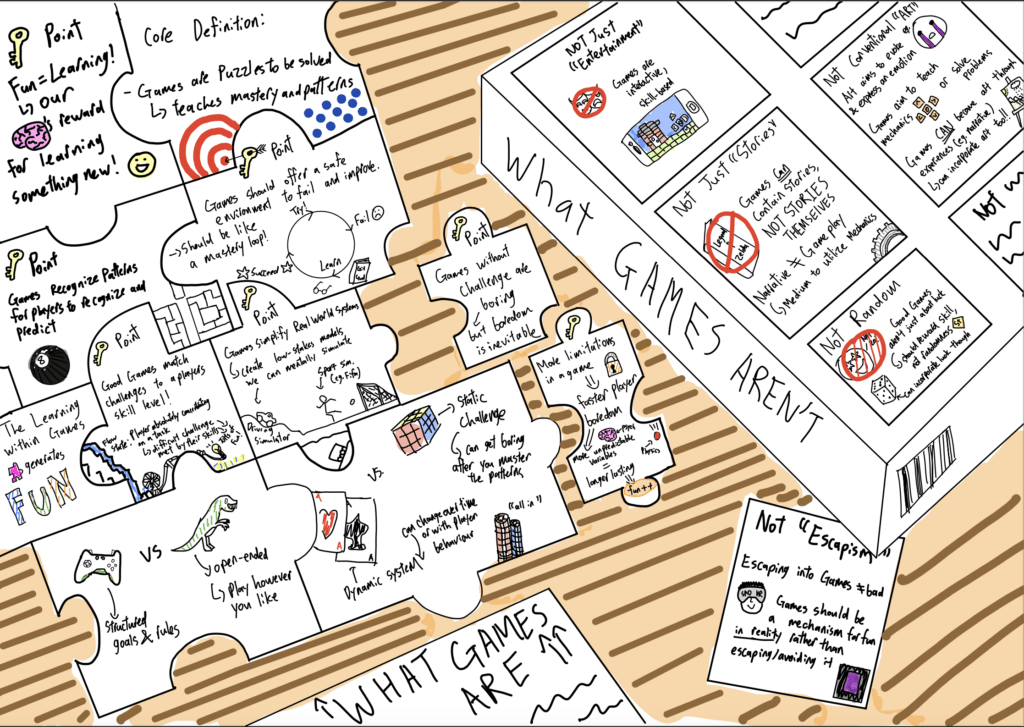 Point
Fun = Learning!
↳ our
's reward
for learning
something new!
Core Definition:
- Games are Puzzles to be solved
↳ teaches mastery and patterns
Point
Games should offer a safe
environment to fail and improve.
→ Should be like
a mastery loop!
Try!
Fail
Learn
Succeed
Point
Games Recognize Patterns
for players to recognize and
predict
8
Point
Good Games match
challenges to a players
skill level!
Flow
State: Player absolutely
in a task
↳ difficult challenge
met by their skills
Point
Games simplify Real World Systems
↳ create low-stakes models,
we can mentally simulate
Sport Sim.
(e.g. Fifa)
Driving
Simulator
The Learning
within Games
generates
FUN
VS
structured
goals & rules
open-ended
↳ Play however
you like
Vs.
Static
Challenge
↳ can get boring
after you master
the patterns
A
A
A
Dynamic system
can change over time
or with player
behaviour
"all in"
Point
Games without
challenge are
boring
but boredom
is inevitable
More limitations
in a game
foster player
boredom
more unpredictable
variables
=
longer lasting
Physics
fun ++
↑WHAT GAMES
ARE ↑↑
WHAT GAMES AREN'T
NOT JUST
"Entertainment"
Games are
interactive,
skill-based
Not Just "Stories"
Games can
contain stories,
NOT STORIES
THEMSELVES
Legend
of
Zelda
Narrative ≠ Gameplay
↳ Medium to utilize mechanics
Not Random
Good Games
aren't just about luck
↳ should reward skill
not randomness
↳ can incorporate luck though
Not Conventional "ART"
Art aims to evoke
& express an emotion
Games aim to teach
mechanics or solve problems
Games CAN become art through
experiences (e.g. narrative)
↳ can incorporate art too!!
NOT
Not "Escapism"
Escaping into Games ≠ bad
Games should be
a mechanism for fun
in reality rather than
escaping/avoiding it